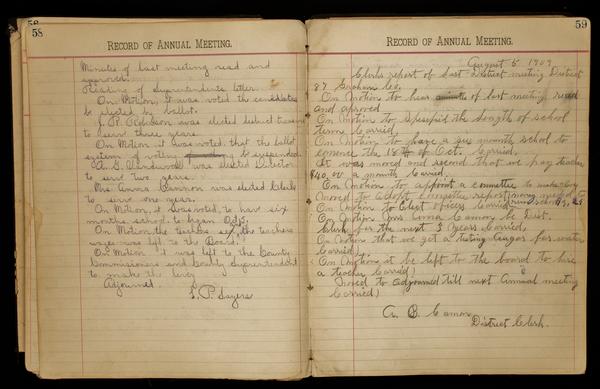 58
RECORD OF ANNUAL MEETING.
Minutes of last meeting read and
approved.
Reading of Superintendents letter.
On Motion, it was voted the candidates
be elected by ballot.
J. R. was elected
to serve three years.
On Motion it was voted that the ballot
system of voting be suspended.
A. G. was elected Director
to serve two years.
Mrs. Anna Cannon was elected Clerk
to serve one year.
On Motion, it was voted, to have six
months school, began Oct.
On Motion the teachers the teachers
wages was left to the Board.
On Motion it was left to the County
Commissioners and County Superintendent
to make the levy
Adjourned.
L. P. Sayers
59
RECORD OF ANNUAL MEETING.
August 5 1909
Clerks report of last meeting District
87 Graham Co.
On Motion to hear minutes of last meeting read
and aproved
On Motion to the length of school
term Carried,
On Motion to have a six month school to
comence the of Oct. Carried,
It was moved and second that we pay teacher
$40.00 a month Carried,
On Motion to appoint a committee to
moved to adopt committee report
On Motion to elect officers Carried
On Motion Mrs Anna Camon be Dist.
Clerk for the next 3 years Carried,
On Motion that we get a testing Augar for water
Carried,
On Motion it be left to the board to hire
a teacher Carried)
moved to adjourned till next Annual meeting
Carried)
A. B. Camon
District Clerk.